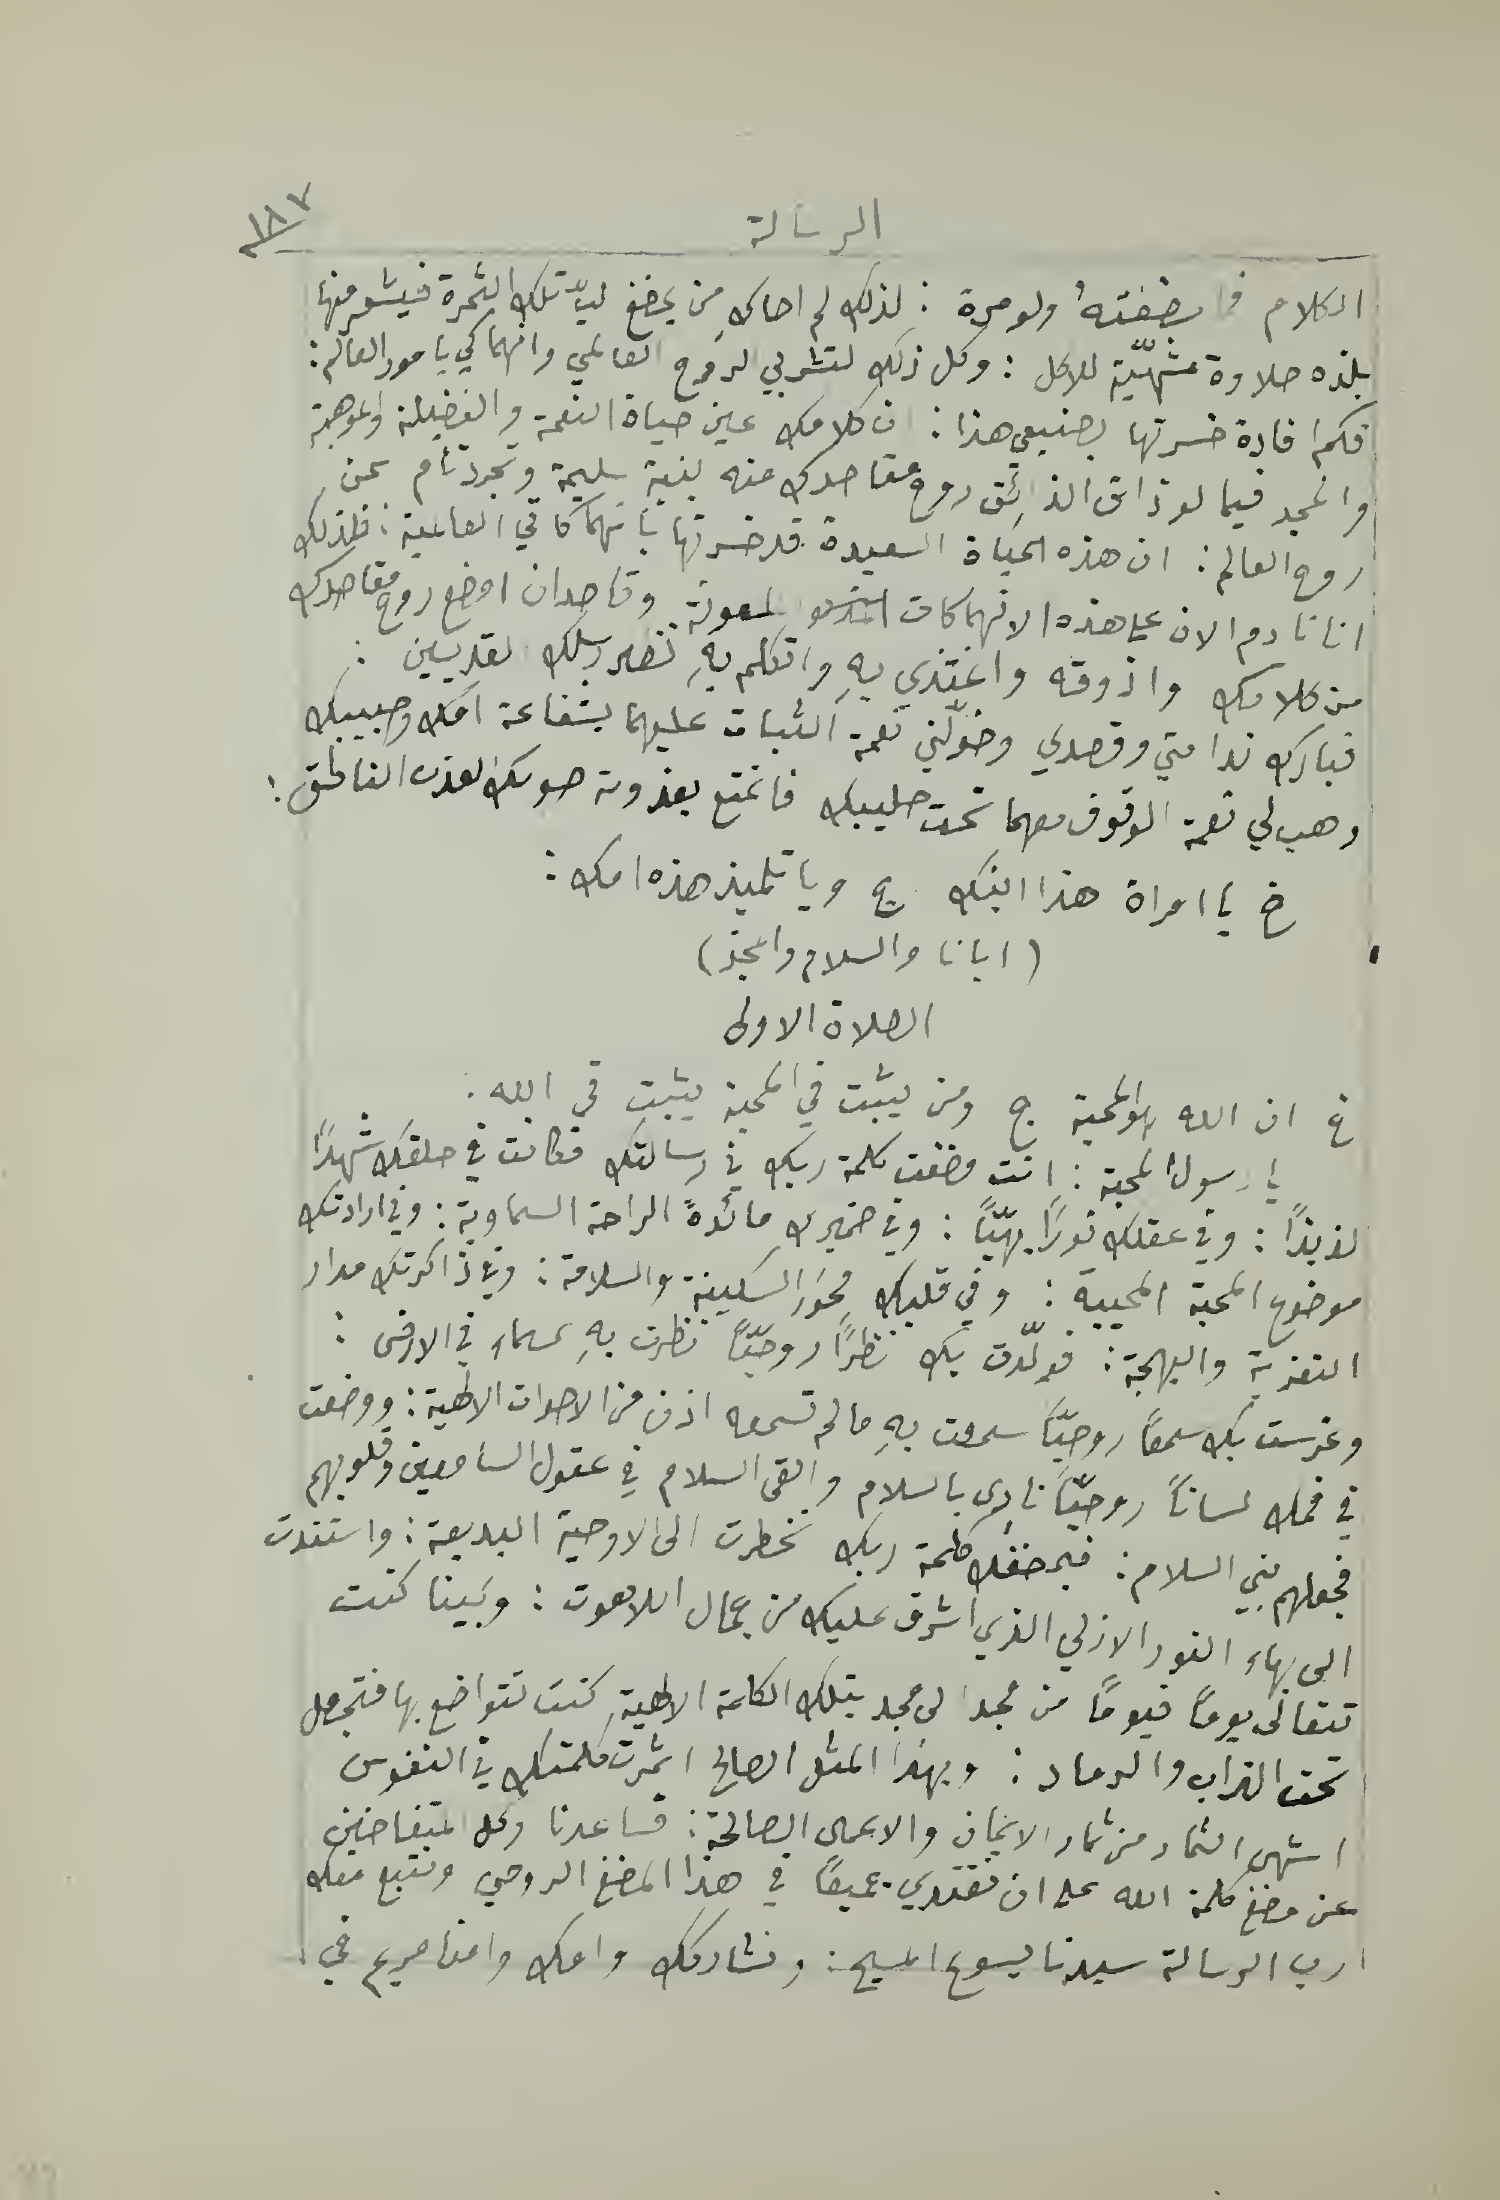 ١٨٧
الرسالة
الكلام فما مضغتهُ ولو مرة : لذلك لم احاكِ من يمضغ لبّ تلك الثمرة فيشعر منها
بلذه حلاوة مشهّية للاكل : وكل ذلك لتشربي لروح العالمي وانهماكي بامور العالم :
فكم افادة خسرتها بصنيعي هذا : ان كلامك عين حياة النعمة والفضيلة والموهبة
والمجد فيما لو ذاق الذائق روح مقاصدك منه بنية سليمة وتجرد تام عن
روح العالم : ان هذه الحياة السعيدة قد خسرتها بانهماكاتي العالمية : فلذلك
انا نادم الان على هذه الانهماكات وقاصد ان اوضع روح مقاصدك
من كلامك واذوقه واغتذي بهِ واتكلم بهِ نظير رسلك القديسين :
فبارك ندامتي وقصدي وخوّلني نعمة الثبات عليهما بشفاعة امك وحبيبك
وهب لي نعمة الوقوف معهما تحت صليبك فاتمتع بعذوبة صوتك العذب الناطق :
خ يا امراة هذا ابنك ج ويا تلميذ هذه امك :
( ابانا والسلام والمجد )
الصلاة الاولى
خ ان الله هو المحبة ج ومن يثبت في المحبة يثبت في الله :
يا رسول المحبة : انت مضغت كلمة ربك في رسالتك فكانت في حلقك شهدًا
لذيذًا : وفي عقلك نورًا بهيّاً : وفي ضميرك مائدةً الراحة السماوية : وفي ارادتك
موضوع المحبة المحيية : وفي قلبك محوَر السكينة والسلامة : وفي ذاكرتك مدار
التعزية والبهجة : فولّدت بك نظرًا روحيّاً نظرت بهِ سماء في الارض :
وغرست بك سمعًا روحيّاً سمعت بهِ ما لم تسمعه اذن من الاصوات الالهية : ووضعت
في فمك لساناً روحيّاً نادى بالسلام والقى السلام في عقول السامعين وقلوبهم
فجعلهم بني السلام : فبمضغك كلمة ربك نخطرت الى الاوحية البديعة : واستندت
الى بهاء النور الازلي الذي اشرق عليك من جمال اللاهوت : وبينا كنت
تتعالى يومًا فيومًا من مجد الى مجد بتلك الكلمة الالهية كنت تتواضع بها فتجعل
تحت التراب والرماد : وبهذا المثل الصالح اثمرت كلمتك في النفوس
اشهى الثمار من ثمار الايمان والاعمال الصالحة : فساعدنا وكل المتغاضين
عن مضغ كلمة الله على ان نقتدي جميعًا في هذا المضغ الروحي ونتبع معك
ارب الرسالة سيدنا يسوع المسيح : ونشاركك وامك وامنا مريم في